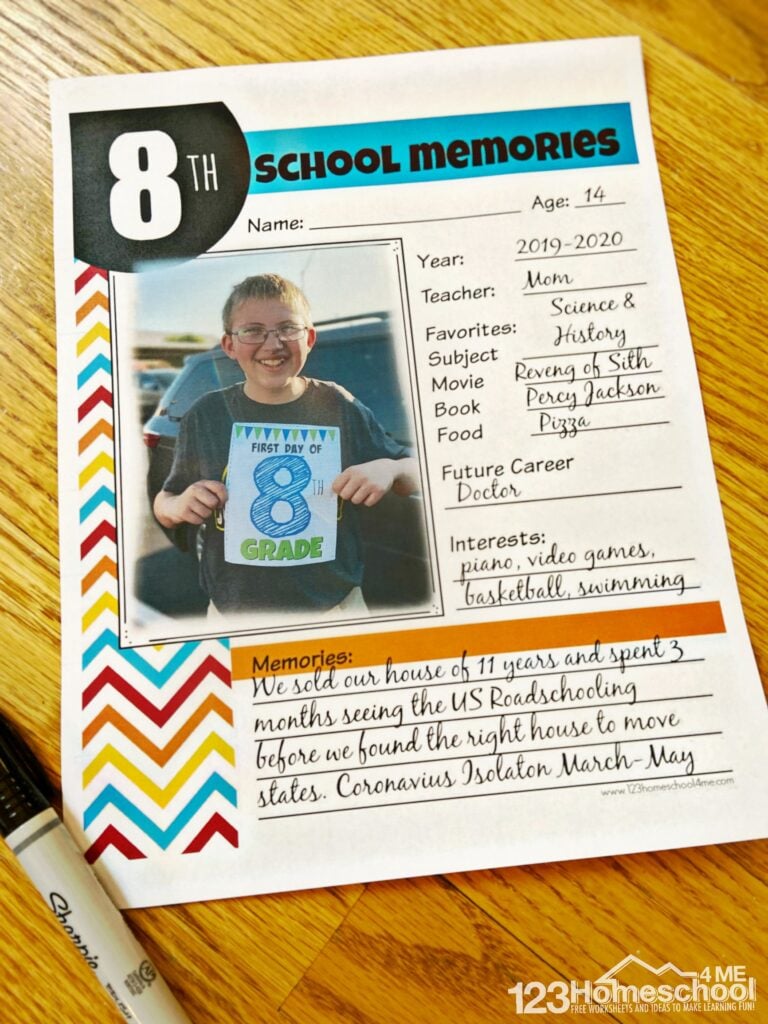 8TH SCHOOL MEMORIES
Name: Age: 14
Year: 2019-2020
Teacher: Mom
Favorites:
Subject Science & History
Movie Reveng of Sith
Book Percy Jackson
Food Pizza
FIRST DAY OF
8TH
GRADE
Future Career
Doctor
Interests:
piano, video games,
basketball, swimming
Memories:
We sold our house of 11 years and spent 3
months seeing the US Roadschooling
before we found the right house to move
states. Coronavius Isolaton March-May
www.123homeschool4me.com
Sharpie
4 ME
123Homeschool
FREE WORKSHEETS AND IDEAS TO MAKE LEARNING FUN!